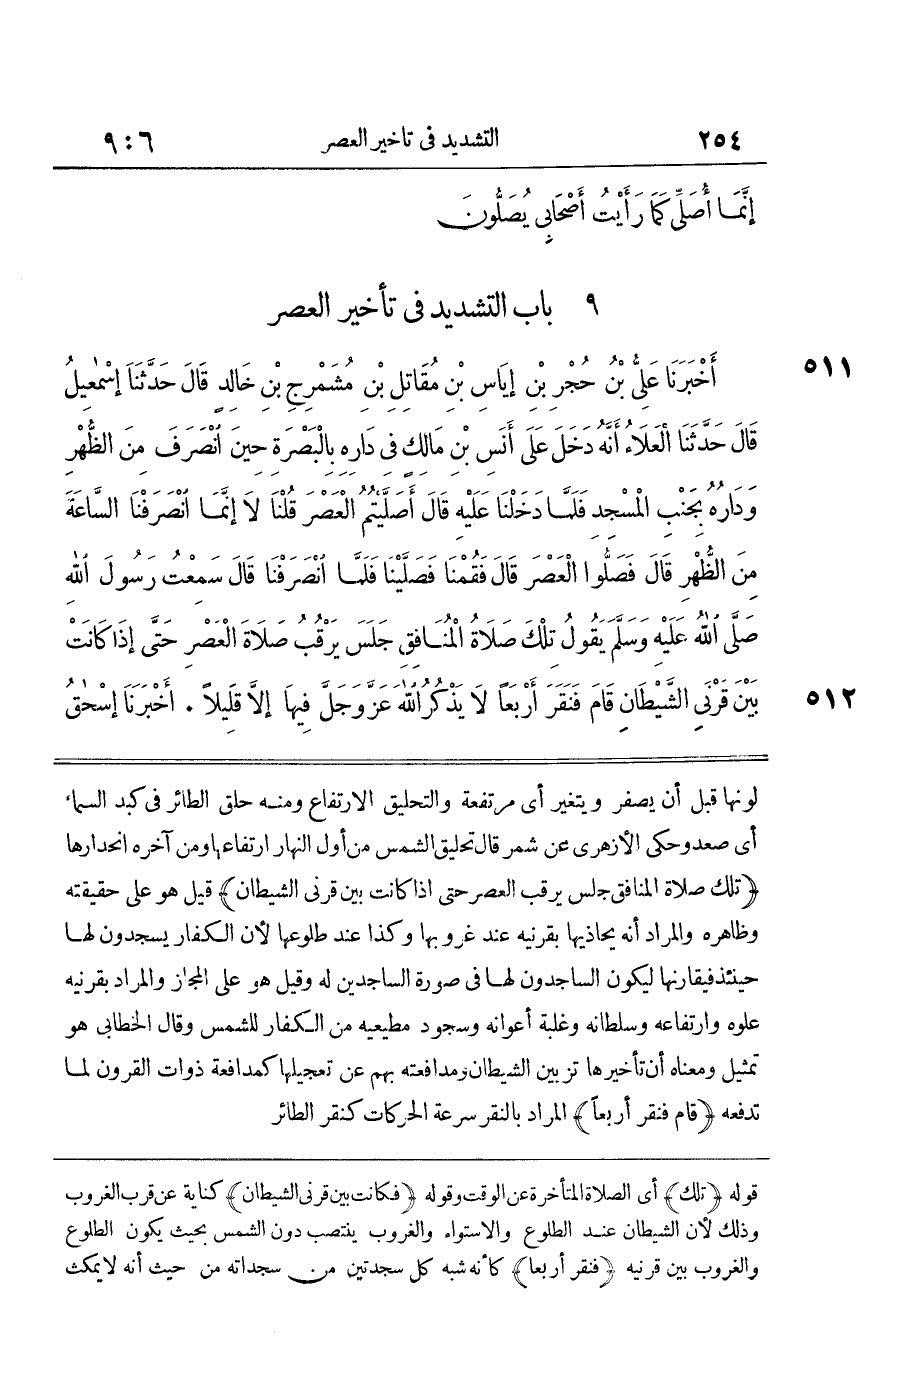 ٢٥٤ التشديد فى تأخير العصر ٦ : ٩
إِنَّمَا أُصَلِّى كَمَا رَأَيْتُ أَصْحَابِى يُصَلُّونَ
٩ باب التشديد فى تأخير العصر
٥١١ أَخْبَرَنَا عَلِىُّ بْنُ حُجْرِ بْنِ إِيَاسِ بْنِ مُقَاتِلِ بْنِ مُشَمْرِجِ بْنِ خَالِدٍ قَالَ حَدَّثَنَا إِسْمٰعِيلُ
قَالَ حَدَّثَنَا الْعَلَاءُ أَنَّهُ دَخَلَ عَلَى أَنَسِ بْنِ مَالِكٍ فِى دَارِهِ بِالْبَصْرَةِ حِينَ انْصَرَفَ مِنَ الظُّهْرِ
وَدَارُهُ بِجَنْبِ الْمَسْجِدِ فَلَمَّا دَخَلْنَا عَلَيْهِ قَالَ أَصَلَّيْتُمُ الْعَصْرَ قُلْنَا لَا إِنَّمَا انْصَرَفْنَا السَّاعَةَ
مِنَ الظُّهْرِ قَالَ فَصَلُّوا الْعَصْرَ قَالَ فَقُمْنَا فَصَلَّيْنَا فَلَمَّا انْصَرَفْنَا قَالَ سَمِعْتُ رَسُولَ اللهِ
صَلَّى اللهُ عَلَيْهِ وَسَلَّمَ يَقُولُ تِلْكَ صَلَاةُ الْمُنَافِقِ جَلَسَ يَرْقُبُ صَلَاةَ الْعَصْرِ حَتَّى إِذَا كَانَتْ
٥١٢ بَيْنَ قَرْنَىِ الشَّيْطَانِ قَامَ فَنَقَرَ أَرْبَعًا لَا يَذْكُرُ اللهَ عَزَّ وَجَلَّ فِيهَا إِلَّا قَلِيلًا . أَخْبَرَنَا إِسْحٰقُ
لونها قبل أن يصفر ويتغير أى مرتفعة والتحليق الارتفاع ومنه حلق الطائر فى كبد السماء
أى صعد وحكى الأزهرى عن شمر قال تحليق الشمس من أول النهار ارتفاعها ومن آخره انحدارها
﴿تلك صلاة المنافق جلس يرقب العصر حتى اذا كانت بين قرنى الشيطان﴾ قيل هو على حقيقته
وظاهره والمراد أنه يحاذيها بقرنيه عند غروبها وكذا عند طلوعها لأن الكفار يسجدون لها
حينئذ فيقارنها ليكون الساجدون لها فى صورة الساجدين له وقيل هو على المجاز والمراد بقرنيه
علوه وارتفاعه وسلطانه وغلبة أعوانه وسجود مطيعيه من الكفار للشمس وقال الخطابى هو
تمثيل ومعناه أن تأخيرها تزيين الشيطان ومدافعته بهم عن تعجيلها كمدافعة ذوات القرون لما
تدفعه ﴿قام فنقر أربعاً﴾ المراد بالنقر سرعة الحركات كنقر الطائر
قوله ﴿تلك﴾ أى الصلاة المتأخرة عن الوقت وقوله ﴿فكانت بين قرنى الشيطان﴾ كناية عن قرب الغروب
وذلك لأن الشيطان عند الطلوع والاستواء والغروب ينتصب دون الشمس بحيث يكون الطلوع
والغروب بين قرنيه ﴿فنقر أربعا﴾ كأنه شبه كل سجدتين من سجداته من حيث أنه لا يمكث